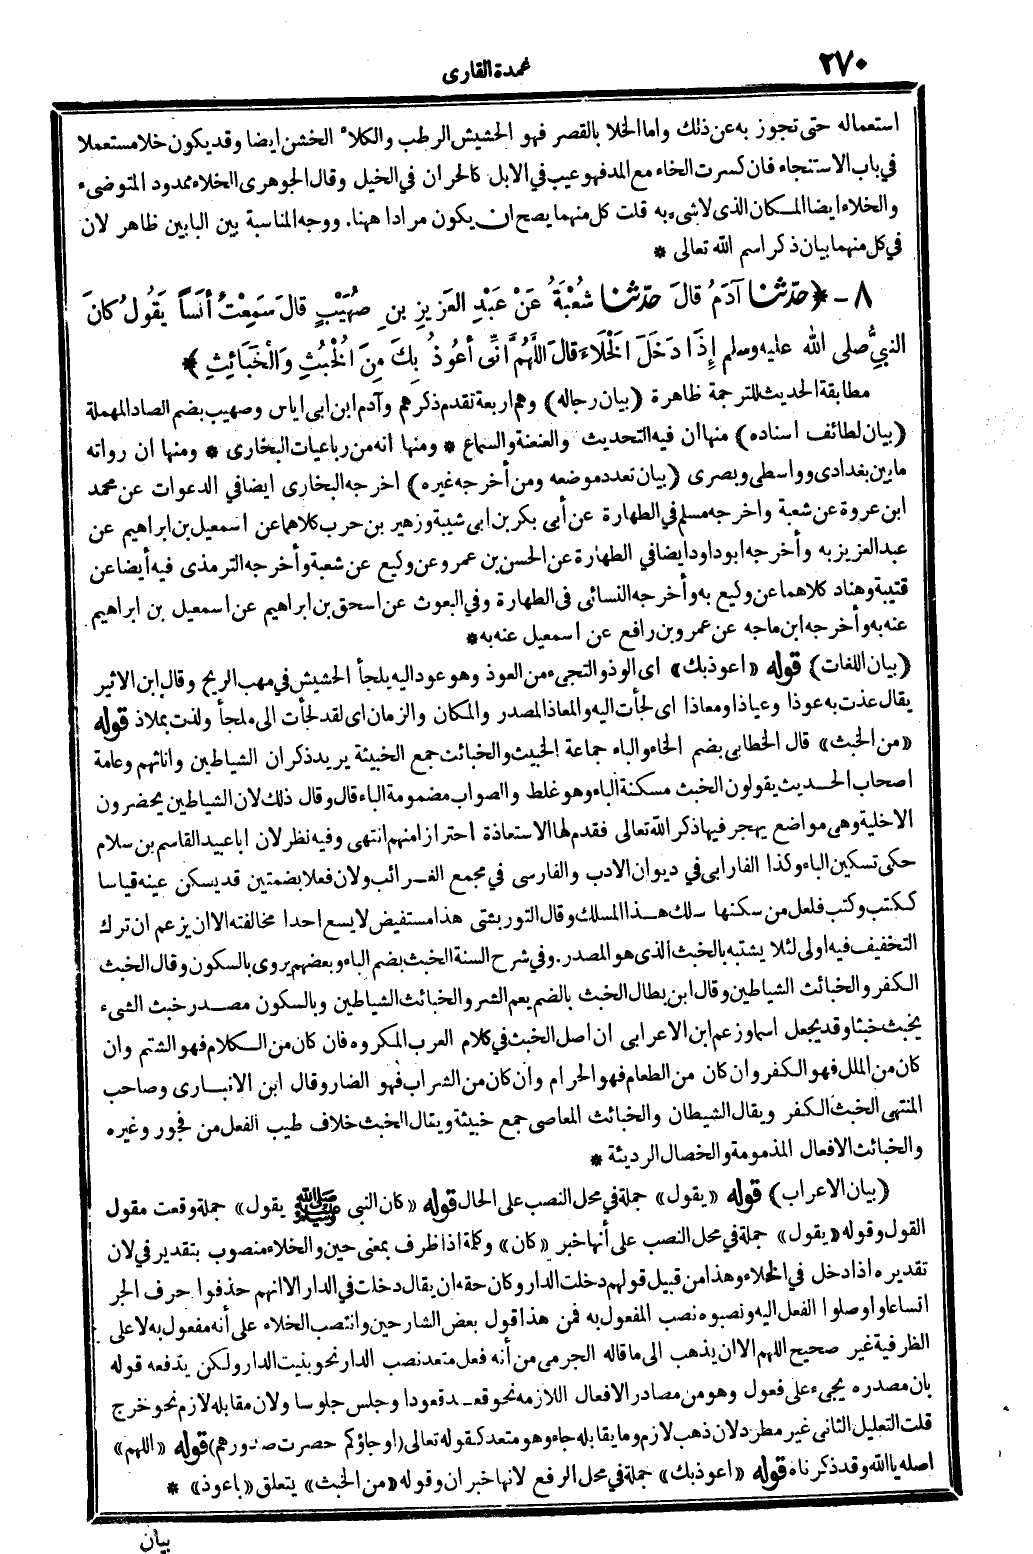 ٢٧٠
عمدة القارى
استعماله حتى تجوز به عن ذلك واما الخلا بالقصر فهو الحشيش الرطب والكلاء الخشن ايضا وقد يكون خلا مستعملا
في باب الاستنجاء فان كسرت الخاء مع المد فهو عيب في الابل كالحران في الخيل وقال الجوهرى الخلاء ممدود المتوضىء
والخلاء ايضا المكان الذى لاشىء به قلت كل منهما يصح ان يكون مرادا ههنا. ووجه المناسبة بين البابين ظاهر لان
في كل منهما بيان ذكر اسم الله تعالى *
٨ - ﴿ حَدَّثَنَا آدَمُ قَالَ حَدَّثَنَا شُعْبَةُ عَنْ عَبْدِ العَزِيزِ بنِ صُهَيْبٍ قَالَ سَمِعْتُ أَنَساً يَقُولُ كَانَ
النبيُّ صلى الله عليه وسلم إِذَا دَخَلَ الخَلَاءَ قَالَ اللَّهُمَّ إنِّى أعُوذُ بِكَ مِنَ الْخُبُثِ وَالْخَبَائِثِ ﴾
مطابقة الحديث للترجمة ظاهرة (بيان رجاله) وهم اربعة تقدم ذكرهم وآدم ابن ابى اياس وصهيب بضم الصاد المهملة
(بيان لطائف اسناده) منها ان فيه التحديث والعنعنة والسماع * ومنها انه من رباعيات البخارى * ومنها ان رواته
ما بين بغدادى وواسطى وبصرى (بيان تعدد موضعه ومن أخرجه غيره) اخرجه البخارى ايضا في الدعوات عن محمد
ابن عروة عن شعبة واخرجه مسلم في الطهارة عن أبى بكر بن ابى شيبة وزهير بن حرب كلاهما عن اسمعيل بن ابراهيم عن
عبد العزيز به وأخرجه ابوداود ايضا في الطهارة عن الحسن بن عمرو عن وكيع عن شعبة وأخرجه الترمذى فيه أيضا عن
قتيبة وهناد كلاهما عن وكيع به وأخرجه النسائى فى الطهارة وفي البعوث عن اسحق بن ابراهيم عن اسمعيل بن ابراهيم
عنه به وأخرجه ابن ماجه عن عمرو بن رافع عن اسمعيل عنه به *
(بيان اللغات) قوله «اعوذ بك» اى الوذ والتجىء من العوذ وهو عود اليه يلجأ الحشيش في مهب الريح وقال ابن الاثير
يقال عذت به عوذا وعياذا ومعاذا اى لجأت اليه والمعاذ المصدر والمكان والزمان اى لقد لجأت الى ملجأ ولذت بملاذ قوله
«من الخبث» قال الخطابى بضم الخاء والباء جماعة الخبيث والخبائث جمع الخبيثة يريد ذكران الشياطين واناثهم وعامة
اصحاب الحديث يقولون الخبث مسكنة الباء وهو غلط والصواب مضمومة الباء قال وقال ذلك لان الشياطين يحضرون
الاخلية وهى مواضع يهجر فيها ذكر الله تعالى فقدم لها الاستعاذة احترازا منهم انتهى وفيه نظر لان ابا عبيد القاسم بن سلام
حكى تسكين الباء وكذا الفارابى في ديوان الادب والفارسى في مجمع الغرائب ولان فعلا بضمتين قد يسكن عينه قياسا
ككتب وكتب فلعل من سكنها سلك هذا المسلك وقال التوربشتى هذا مستفيض لا يسع احدا مخالفته الا ان يزعم ان ترك
التخفيف فيه اولى لئلا يشتبه بالخبث الذى هو المصدر. وفي شرح السنة الخبث بضم الباء وبعضهم يروى بالسكون وقال الخبث
الكفر والخبائث الشياطين وقال ابن بطال الخبث بالضم يعم الشر والخبائث الشياطين وبالسكون مصدر خبث الشىء
يخبث خبثا وقد يجعل اسما وزعم ابن الاعرابى ان اصل الخبث في كلام العرب المكروه فان كان من الكلام فهو الشتم وان
كان من الملل فهو الكفر وان كان من الطعام فهو الحرام وان كان من الشراب فهو الضار وقال ابن الانبارى وصاحب
المنتهى الخبث الكفر ويقال الشيطان والخبائث المعاصى جمع خبيثة ويقال الخبث خلاف طيب الفعل من فجور وغيره
والخبائث الافعال المذمومة والخصال الرديئة *
(بيان الاعراب) قوله «يقول» جملة في محل النصب على الحال قوله «كان النبى ﷺ يقول» جملة وقعت مقول
القول وقوله «يقول» جملة في محل النصب على أنها خبر «كان» وكلمة اذا ظرف بمعنى حين والخلاء منصوب بتقدير في لان
تقديره اذا دخل في الخلاء وهذا من قبيل قولهم دخلت الدار وكان حقه ان يقال دخلت في الدار الا انهم حذفوا حرف الجر
اتساعا واوصلوا الفعل اليه ونصبوه نصب المفعول به فمن هذا قول بعض الشارحين وانتصب الخلاء على أنه مفعول به لا على
الظرفية غير صحيح اللهم الا ان يذهب الى ما قاله الجرمى من أنه فعل متعد نصب الدار نحو بنيت الدار ولكن يدفعه قوله
بان مصدره يجىء على فعول وهو من مصادر الافعال اللازمة نحو قعد قعودا وجلس جلوسا ولان مقابله لازم نحو خرج
قلت التعليل الثانى غير مطرد لان ذهب لازم وما يقابله جاء وهو متعد كقوله تعالى (او جاؤكم حصرت صدورهم) قوله «اللهم»
اصله يا الله وقد ذكرناه قوله «اعوذ بك» جملة في محل الرفع لانها خبر ان وقوله «من الخبث» يتعلق «باعوذ» *
بيان